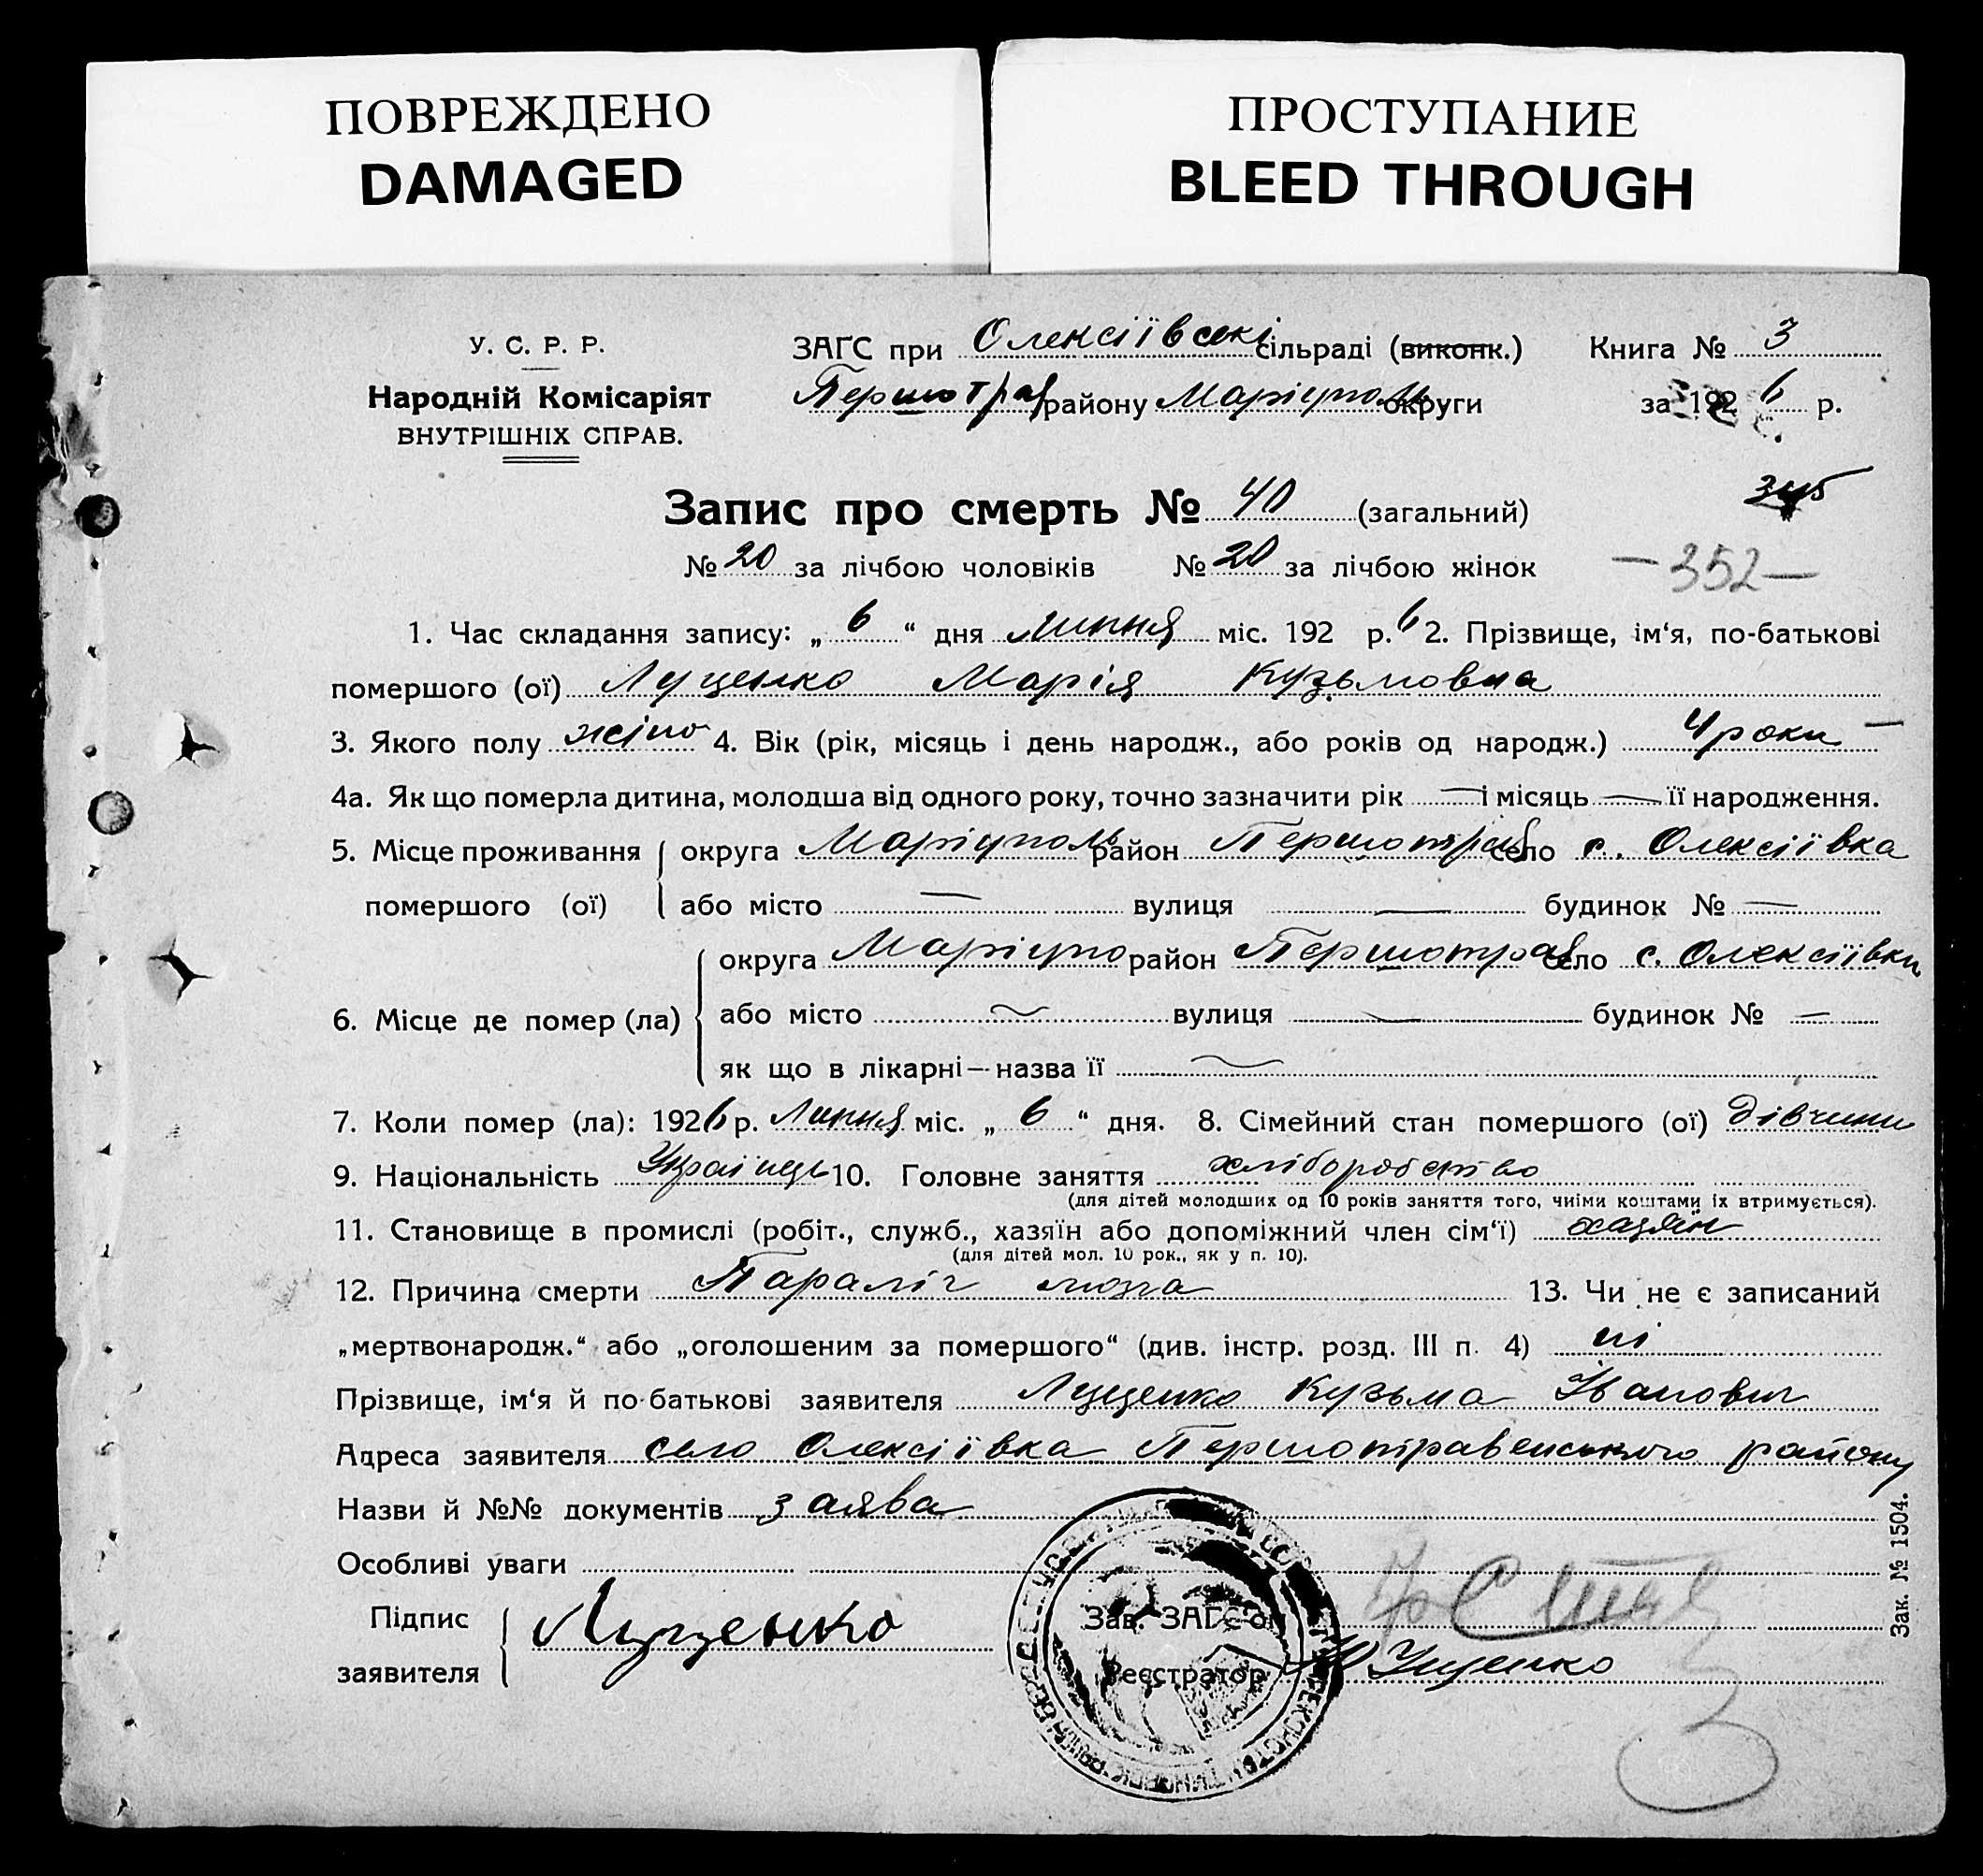 ПОВРЕЖДЕНО
DAMAGED
ПРОСТУПАНИЕ
BLEED THROUGH
У. С. Р. Р.
Народній Комісаріят
ВНУТРІШНІХ СПРАВ.
ЗАГС при Олексіївські сільраді (виконк.) Книга № 3
Першотрав району Маріуполь округи за 1926 р.
Запис про смерть № 40 (загальний)
№ 20 за лічбою чоловіків № 20 за лічбою жінок
—352—
1. Час складання запису: „ 6 “ дня липня міс. 192 р. 6 2. Прізвище, ім‘я, по-батькові
помершого (ої) Луценко Марія Кузьмовна
3. Якого полу жіно 4. Вік (рік, місяць і день народж., або років од народж.) 4 роки —
4а. Як що померла дитина, молодша від одного року, точно зазначити рік — і місяць — її народження.
5. Місце проживання округа Маріуполь район Першотрав село с. Олексіївка
помершого (ої) або місто — вулиця — будинок № —
округа Маріупо район Першотрав село с. Олексіївки
6. Місце де помер (ла) або місто — вулиця — будинок № —
як що в лікарні—назва її —
7. Коли помер (ла): 1926 р. Липня міс. „ 6 “ дня. 8. Сімейний стан помершого (ої) дівчини
9. Національність Українець 10. Головне заняття хліборобство
(для дітей молодших од 10 років заняття того, чиїми коштами їх втримується).
11. Становище в промислі (робіт., служб., хазяїн або допоміжний член сім‘ї) хазяїн
(для дітей мол. 10 рок., як у п. 10).
12. Причина смерти Параліч мозга 13. Чи не є записаний
„мертвонародж.“ або „оголошеним за помершого“ (див. інстр. розд. III п. 4) ні
Прізвище, ім‘я й по-батькові заявителя Луценко Кузьма Іванович
Адреса заявителя село Олексіївка Першотравенського району
Назви й №№ документів заява
Особливі уваги
Підпис
заявителя Луценко
Зав. ЗАГС‘ом
Реєстратор
Зак. № 1504.